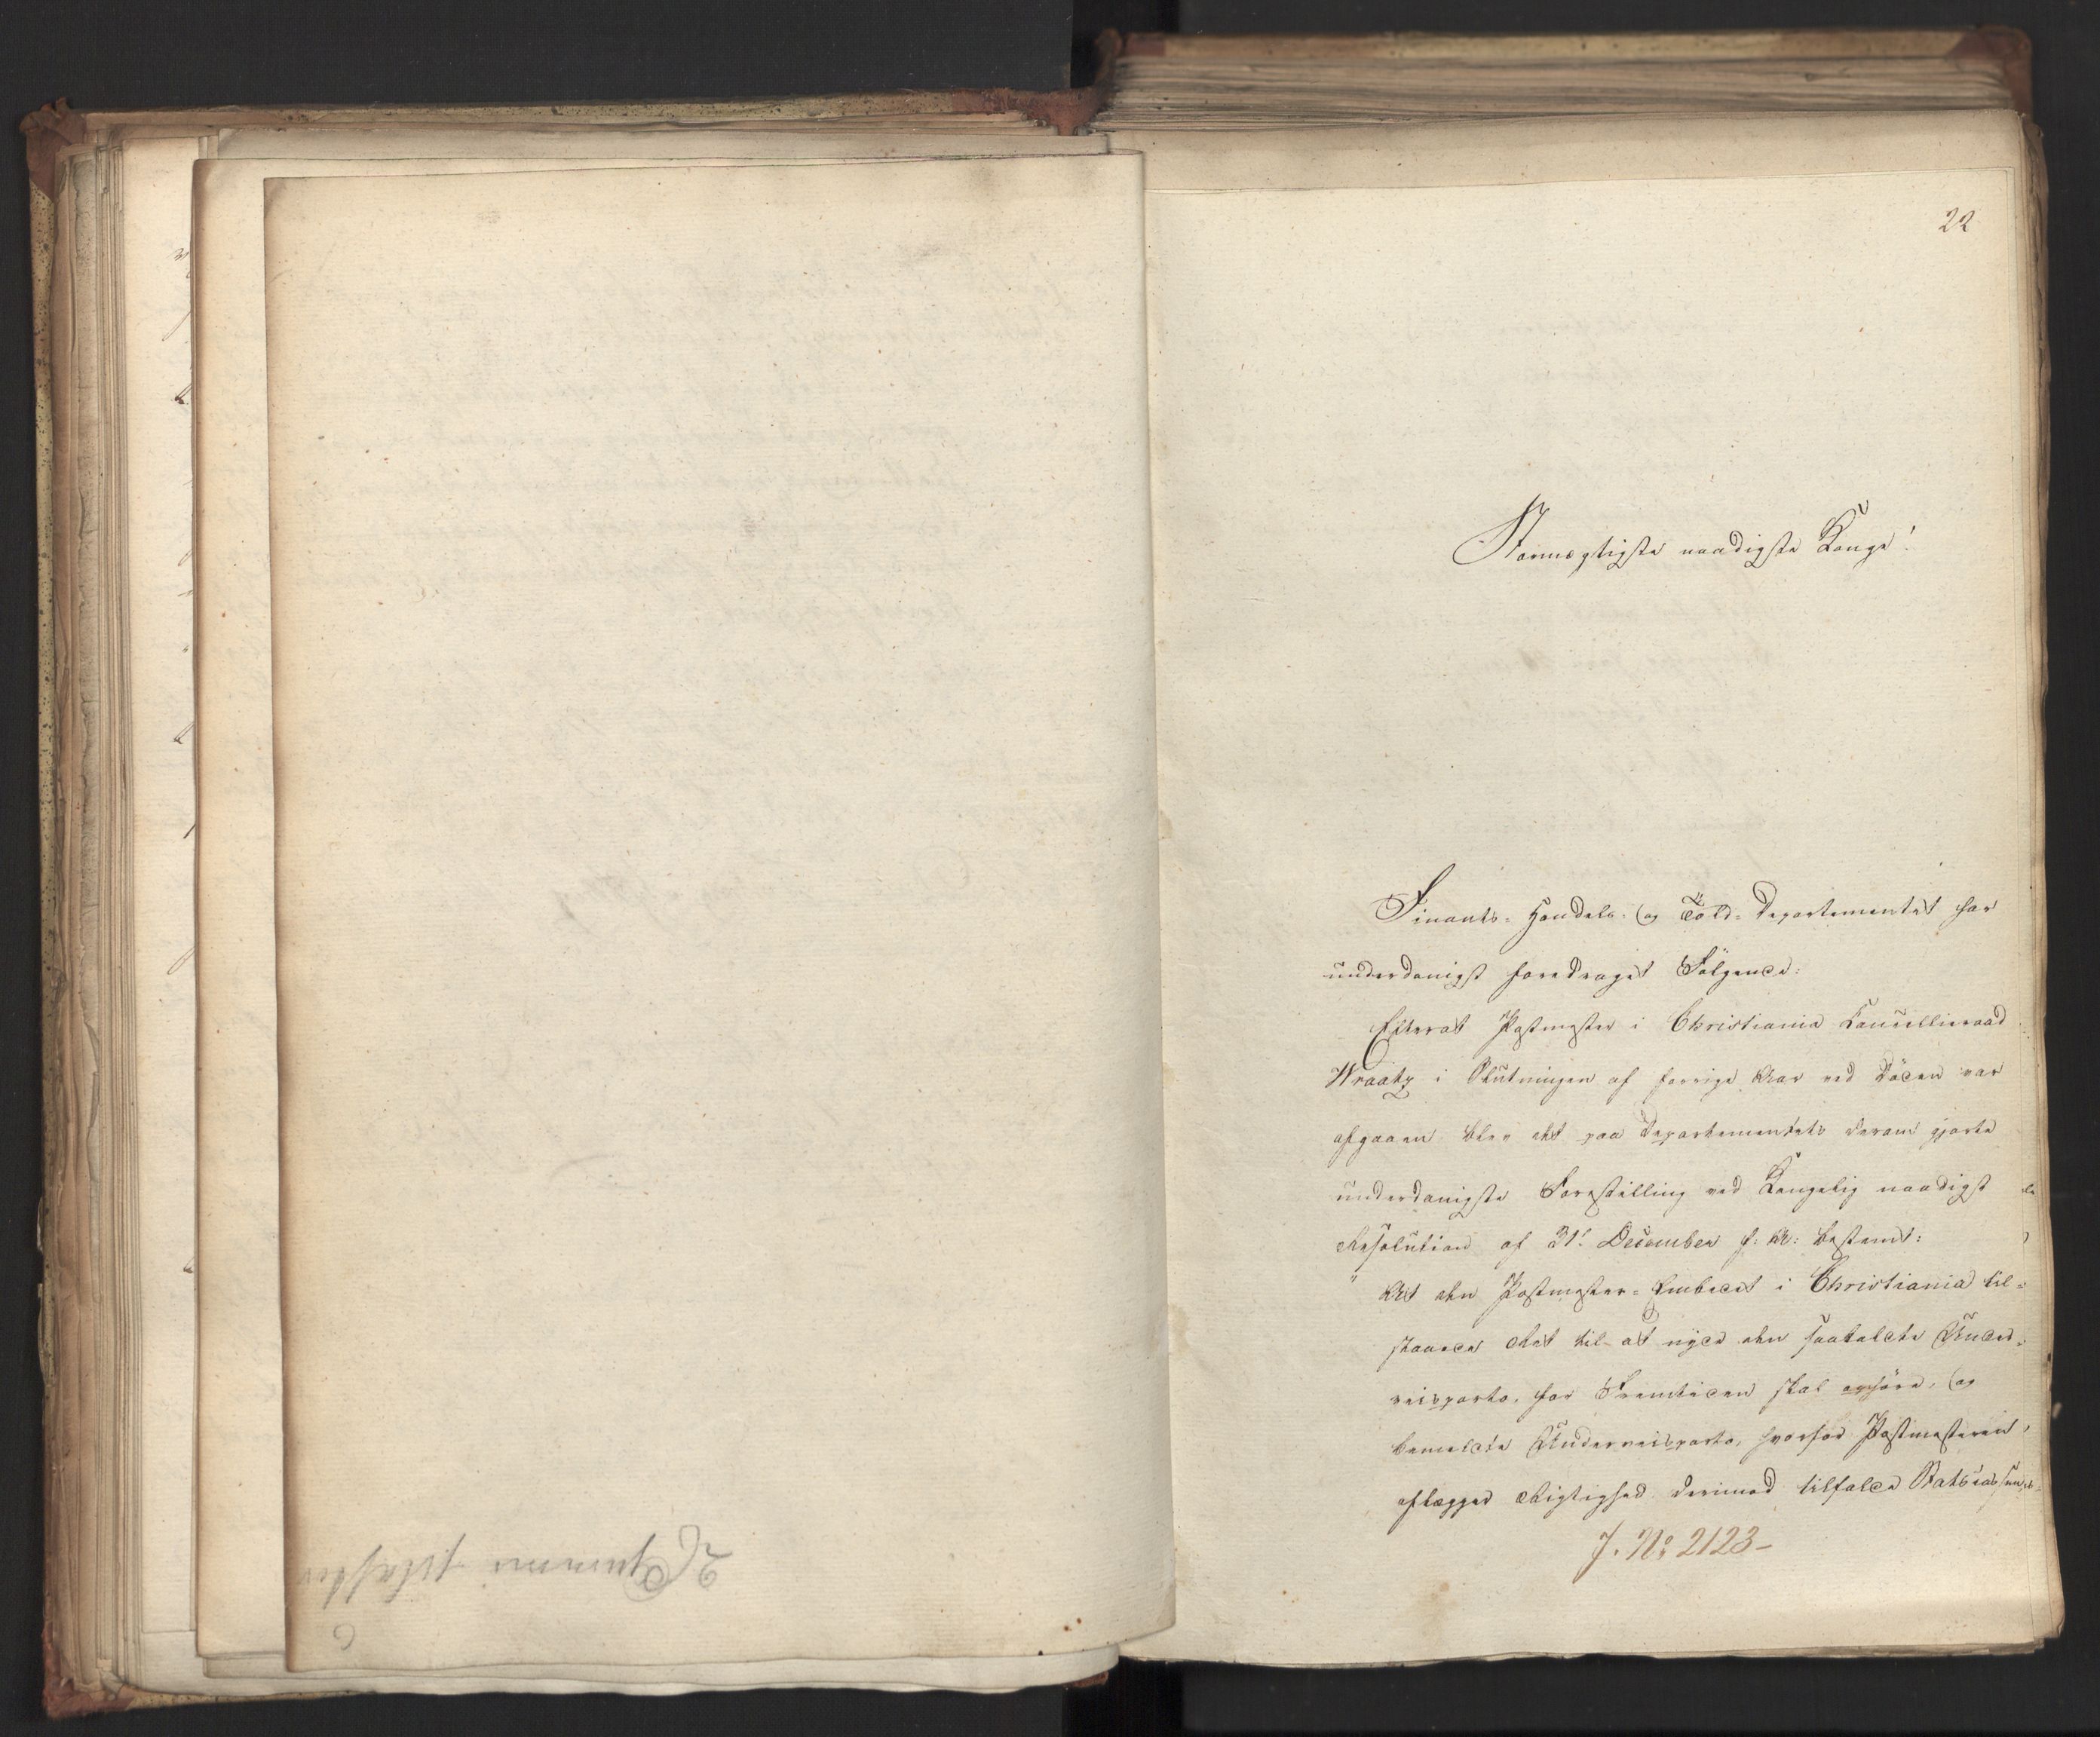 22
Stormægtigste naadigste Konge!
Finants- Handels- og Told-Departementet har
underdanigst foredraget Følgende:
Efterat Postmester i Christiania Cancellieraad
Wraatz i Slutningen af forrige Aar ved Døden var
afgaaen blev det paa Departementets derom gjorte
underdanigste Forestilling ved Kongelig naadigst
Resolution af 31t December f: A: bestemt:
" At den Postmester-Embedet i Christiania til-
staaede Ret til at nyde den saakaldte Under-
veisporto, for Fremtiden skal ophøre, og
bemeldte Underveisporto, hvorfor Postmesteren
aflægger Rigtighed derimod tilfalde Statscassen,
J. No 2123-